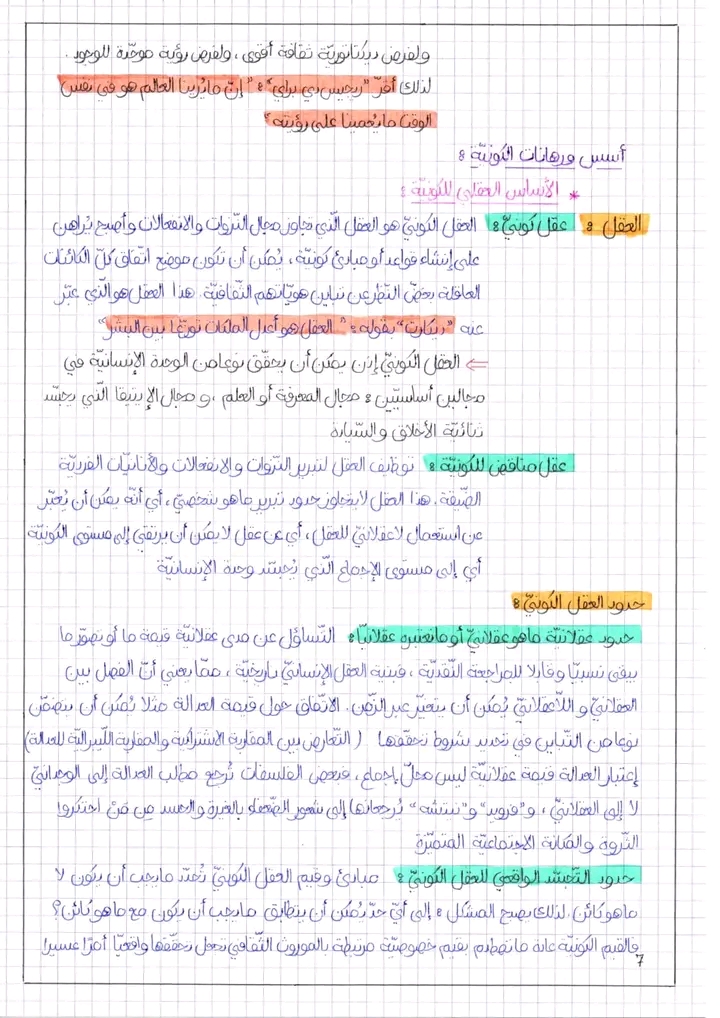 ولفرض ديكتاتوريّة ثقافة أقوى، ولفرض رؤية موحّدة للوجود.
لذلك أقرّ "ريجيس دي براي": "إنّ ما يُرينا العالم هو في نفس
الوقت ما يُعمينا على رؤيته"
أسس ورهانات الكونيّة:
* الأساس العقلي للكونيّة:
العقل: عقل كونيّ: العقل الكونيّ هو العقل الّذي تجاوز مجال النّزوات والانفعالات وأصبح يُراهن
على إنشاء قواعد أو مبادئ كونيّة، يُمكن أن تكون موضع اتّفاق كلّ الكائنات
العاقلة بغضّ النّظر عن تباين هويّاتهم الثّقافيّة. هذا العقل هو الّذي عبّر
عنه "ديكارت" بقوله: "العقل هو أعدل الملكات توزّعا بين البشر"
⇐ العقل الكونيّ إذن يمكن أن يحقّق نوعا من الوحدة الإنسانيّة في
مجالين أساسيّين: مجال المعرفة أو العلم، و مجال الإيتيقا الّتي يجسّد
ثنائيّة الأخلاق والسّيادة
عقل مناقض للكونيّة: توظيف العقل لتبرير النّزوات والانفعالات والأنانيّات الفرديّة
الضّيّقة. هذا العقل لا يتجاوز حدود تبرير ما هو شخصيّ، أي أنّه يمكن أن يُعبّر
عن استعمال لاعقلانيّ للعقل، أي عن عقل لا يمكن أن يرتقي إلى مستوى الكونيّة
أي إلى مستوى الإجماع الّذي يُجسّد وحدة الإنسانيّة
حدود العقل الكونيّ:
حدود عقلانيّة ما هو عقلانيّ أو ما نعتبره عقلانيّا: التّساؤل عن مدى عقلانيّة قيمة ما أو تصوّر ما
يبقى نسبيّا وقابلا للمراجعة النّقديّة، فبنية العقل الإنسانيّ تاريخيّة، ممّا يعني أنّ الفصل بين
العقلانيّ و اللّاعقلانيّ يُمكن أن يتغيّر عبر الزّمن. الاتّفاق حول قيمة العدالة مثلا يُمكن أن يتضمّن
نوعا من التّباين في تحديد شروط تحقّقها (التّعارض بين المقاربة الاشتراكية والمقاربة اللّيبراليّة للعدالة)
إعتبار العدالة قيمة عقلانيّة ليس محلّ إجماع، فبعض الفلسفات تُرجع مطلب العدالة إلى الوجدانيّ
لا إلى العقلانيّ، و"فرويد" و"نيتشه" يُرجعانها إلى شعور الضّعفاء بالغيرة والحسد من مَنْ احتكروا
الثّروة والمكانة الاجتماعيّة المتميّزة
حدود التّجسّد الواقعي للعقل الكونيّ: مبادئ وقيم العقل الكونيّ تُحدّد ما يجب أن يكون لا
ما هو كائن. لذلك يصبح المشكل: إلى أيّ حدّ يُمكن أن يتطابق ما يجب أن يكون مع ما هو كائن؟
فالقيم الكونيّة عادة ما تصطدم بقيم خصوصيّة مرتبطة بالموروث الثّقافي تجعل تحقّقها واقعيّا أمرا عسيرا
7